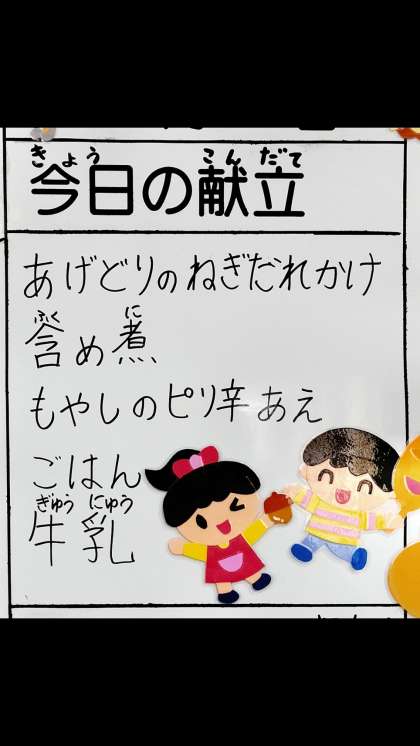 きょう こんだて
今日の献立
あげどりのねぎだれかけ
ふく に
含め煮
もやしのピリ辛あえ
ごはん
ぎゅう にゅう
牛乳